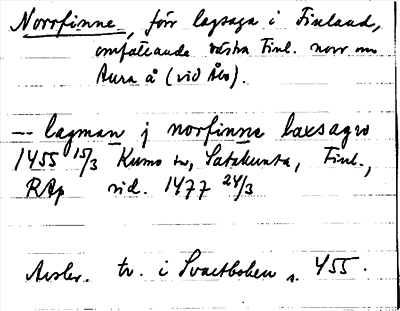 Norrfinne, förr lagsaga i Finland,
omfattande västra Finl. norr om
Aura å (vid Åbo).
— lagman j norfinne laxsagw
1455 15/3 Kumo tr, Satakunta, Finl.,
RAp vid. 1477 24/3
Avskr. tr. i Svartboken s. 455.